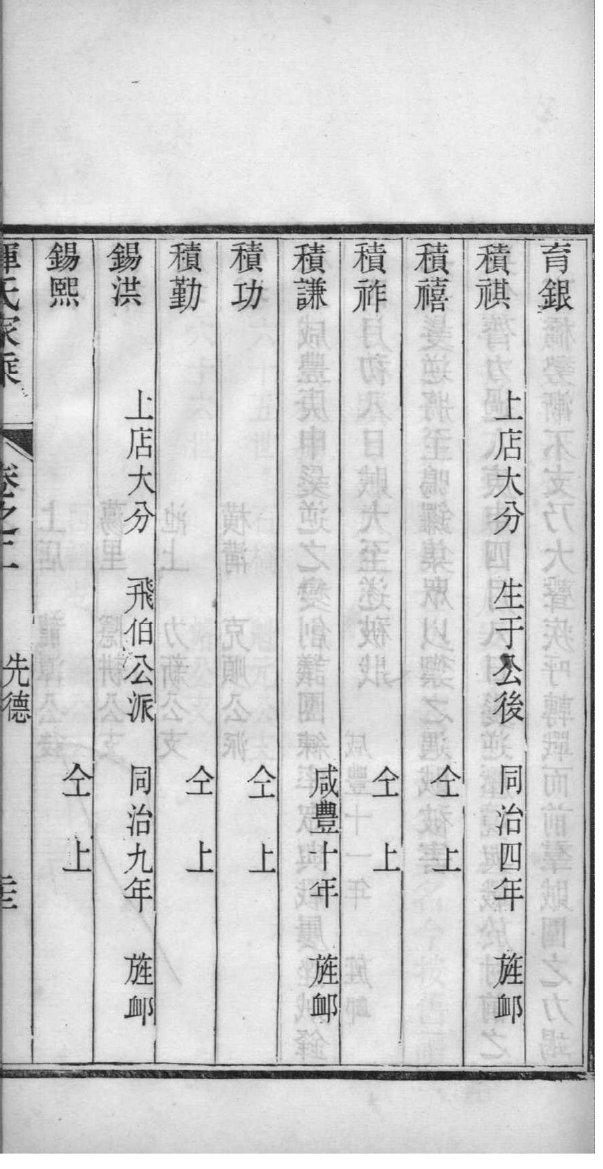 育銀
積祺 上店大分 生于公後 同治四年 旌邮
積禧 仝上
積祚 仝上
積謙 咸豐十年 旌邮
積功 仝上
積勤 仝上
錫洪 上店大分 飛伯公派 同治九年 旌邮
錫熙 仝上
惲氏家乘 卷之三 先德